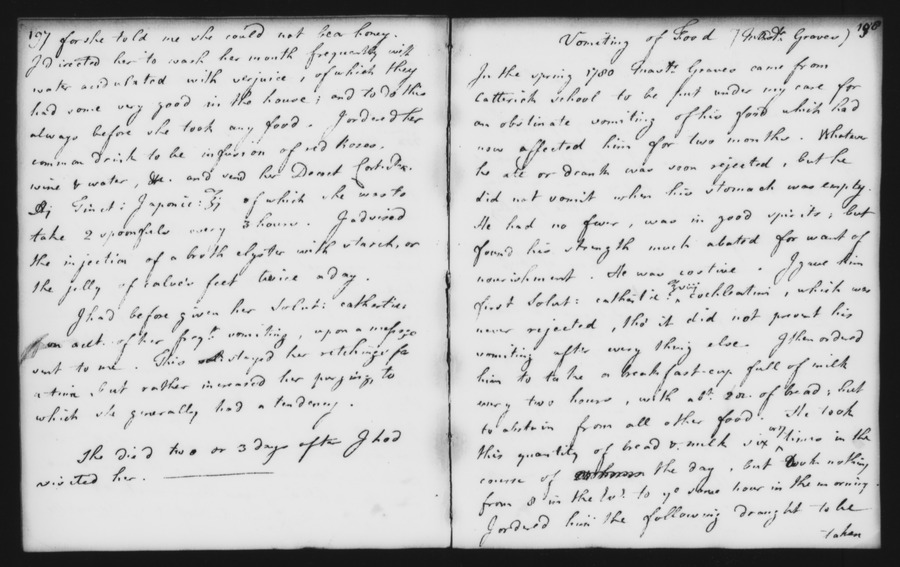 197
for she told me she could not bear honey.
I directed her to wash her mouth frequently with
water acidulated with verjuice, of which they
had some very good in the house; and to do this
always before she took any food. I ordered her
common drink to be infusion of red Roses,
wine & water, &c. and send her Decoct Cort.
Tinct: Japonic: ʒj of which she was to
take 2 spoonfuls every 3 hours. I advised
the injection of a broth clyster with starch, or
the jelly of calve's feet twice a day.
I had before given her Solut: cathartic:
on acct. of her freqt. vomiting, upon a message
sent to me. This stayed her retchings for
a time, but rather increased her purging, to
which she generally had a tendency.
She died two or 3 days after I had
visited her.
198
Vomiting of Food (Mastr. Graves)
In the spring 1780 Mastr. Graves came from
Catterick school to be put under my care for
an obstinate vomiting of his food which had
now affected him for two months. Whatever
he ate or drank was soon rejected, but he
did not vomit when his stomach was empty.
He had no fever, was in good spirits; but
found his strength much abated for want of
nourishment. He was costive. I gave him
first Solut: cathartic: ʒviij cochleatim, which was
never rejected, tho' it did not prevent his
vomiting after every thing else. I then ordered
him to take a breakfast-cup full of milk
every two hours, with abt. 2 oz. of bread; but
to abstain from all other food. He took
this quantity of bread & milk six times in the
course of the day, but took nothing
from 8 in the to ye same hour in the morning.
I ordered him the following draught to be
taken